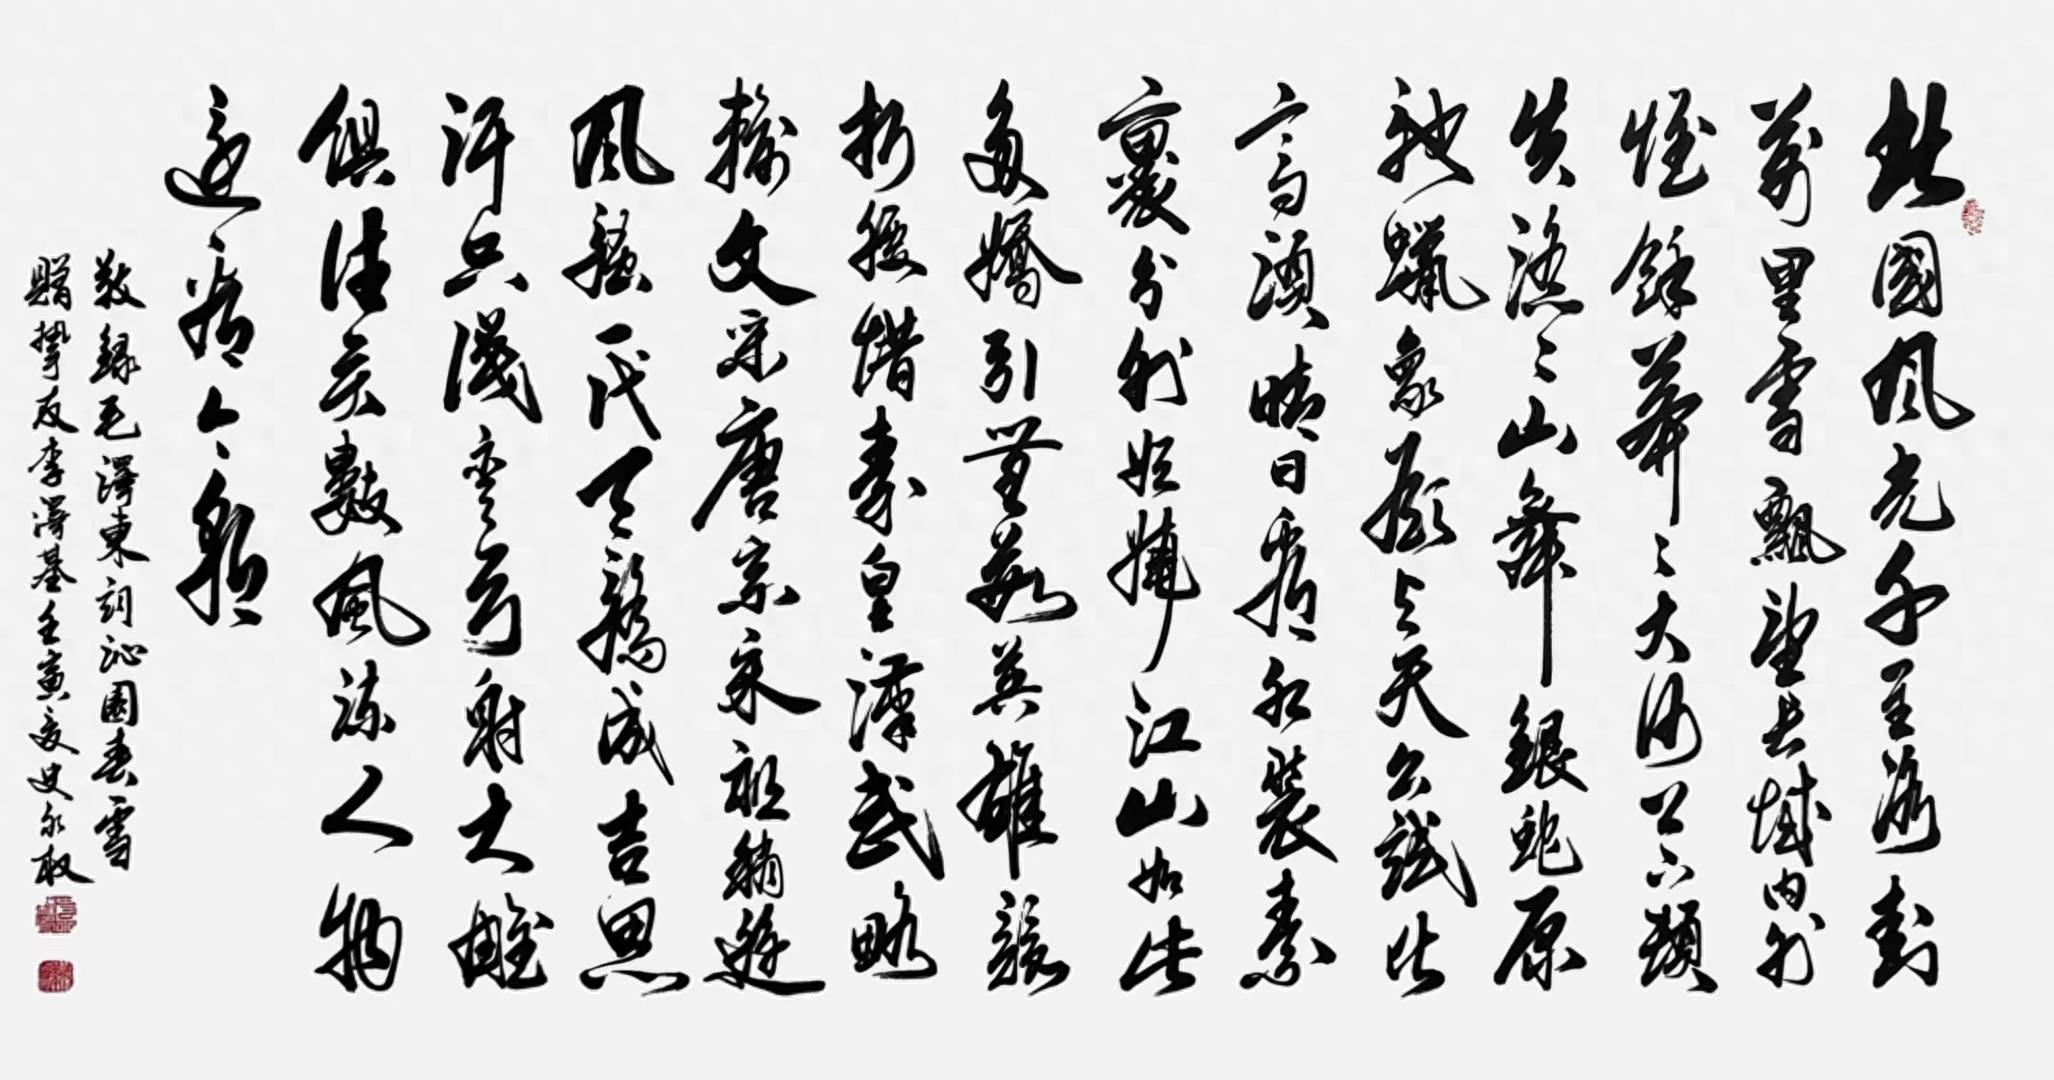 北國風光千里冰封
萬里雪飄望長城內外
惟餘莽々大河上下頓
失滔々山舞銀蛇原
馳蠟象欲與天公試比
高須晴日看紅裝素
裹分外妖嬈江山如此
多嬌引無數英雄競
折腰惜秦皇漢武略
輸文采唐宗宋祖稍遜
風騷一代天驕成吉思
汗只識彎弓射大雕
俱往矣數風流人物
還看今朝
敬錄毛澤東詞沁園春雪
贈摯友李澤基壬寅夏史永